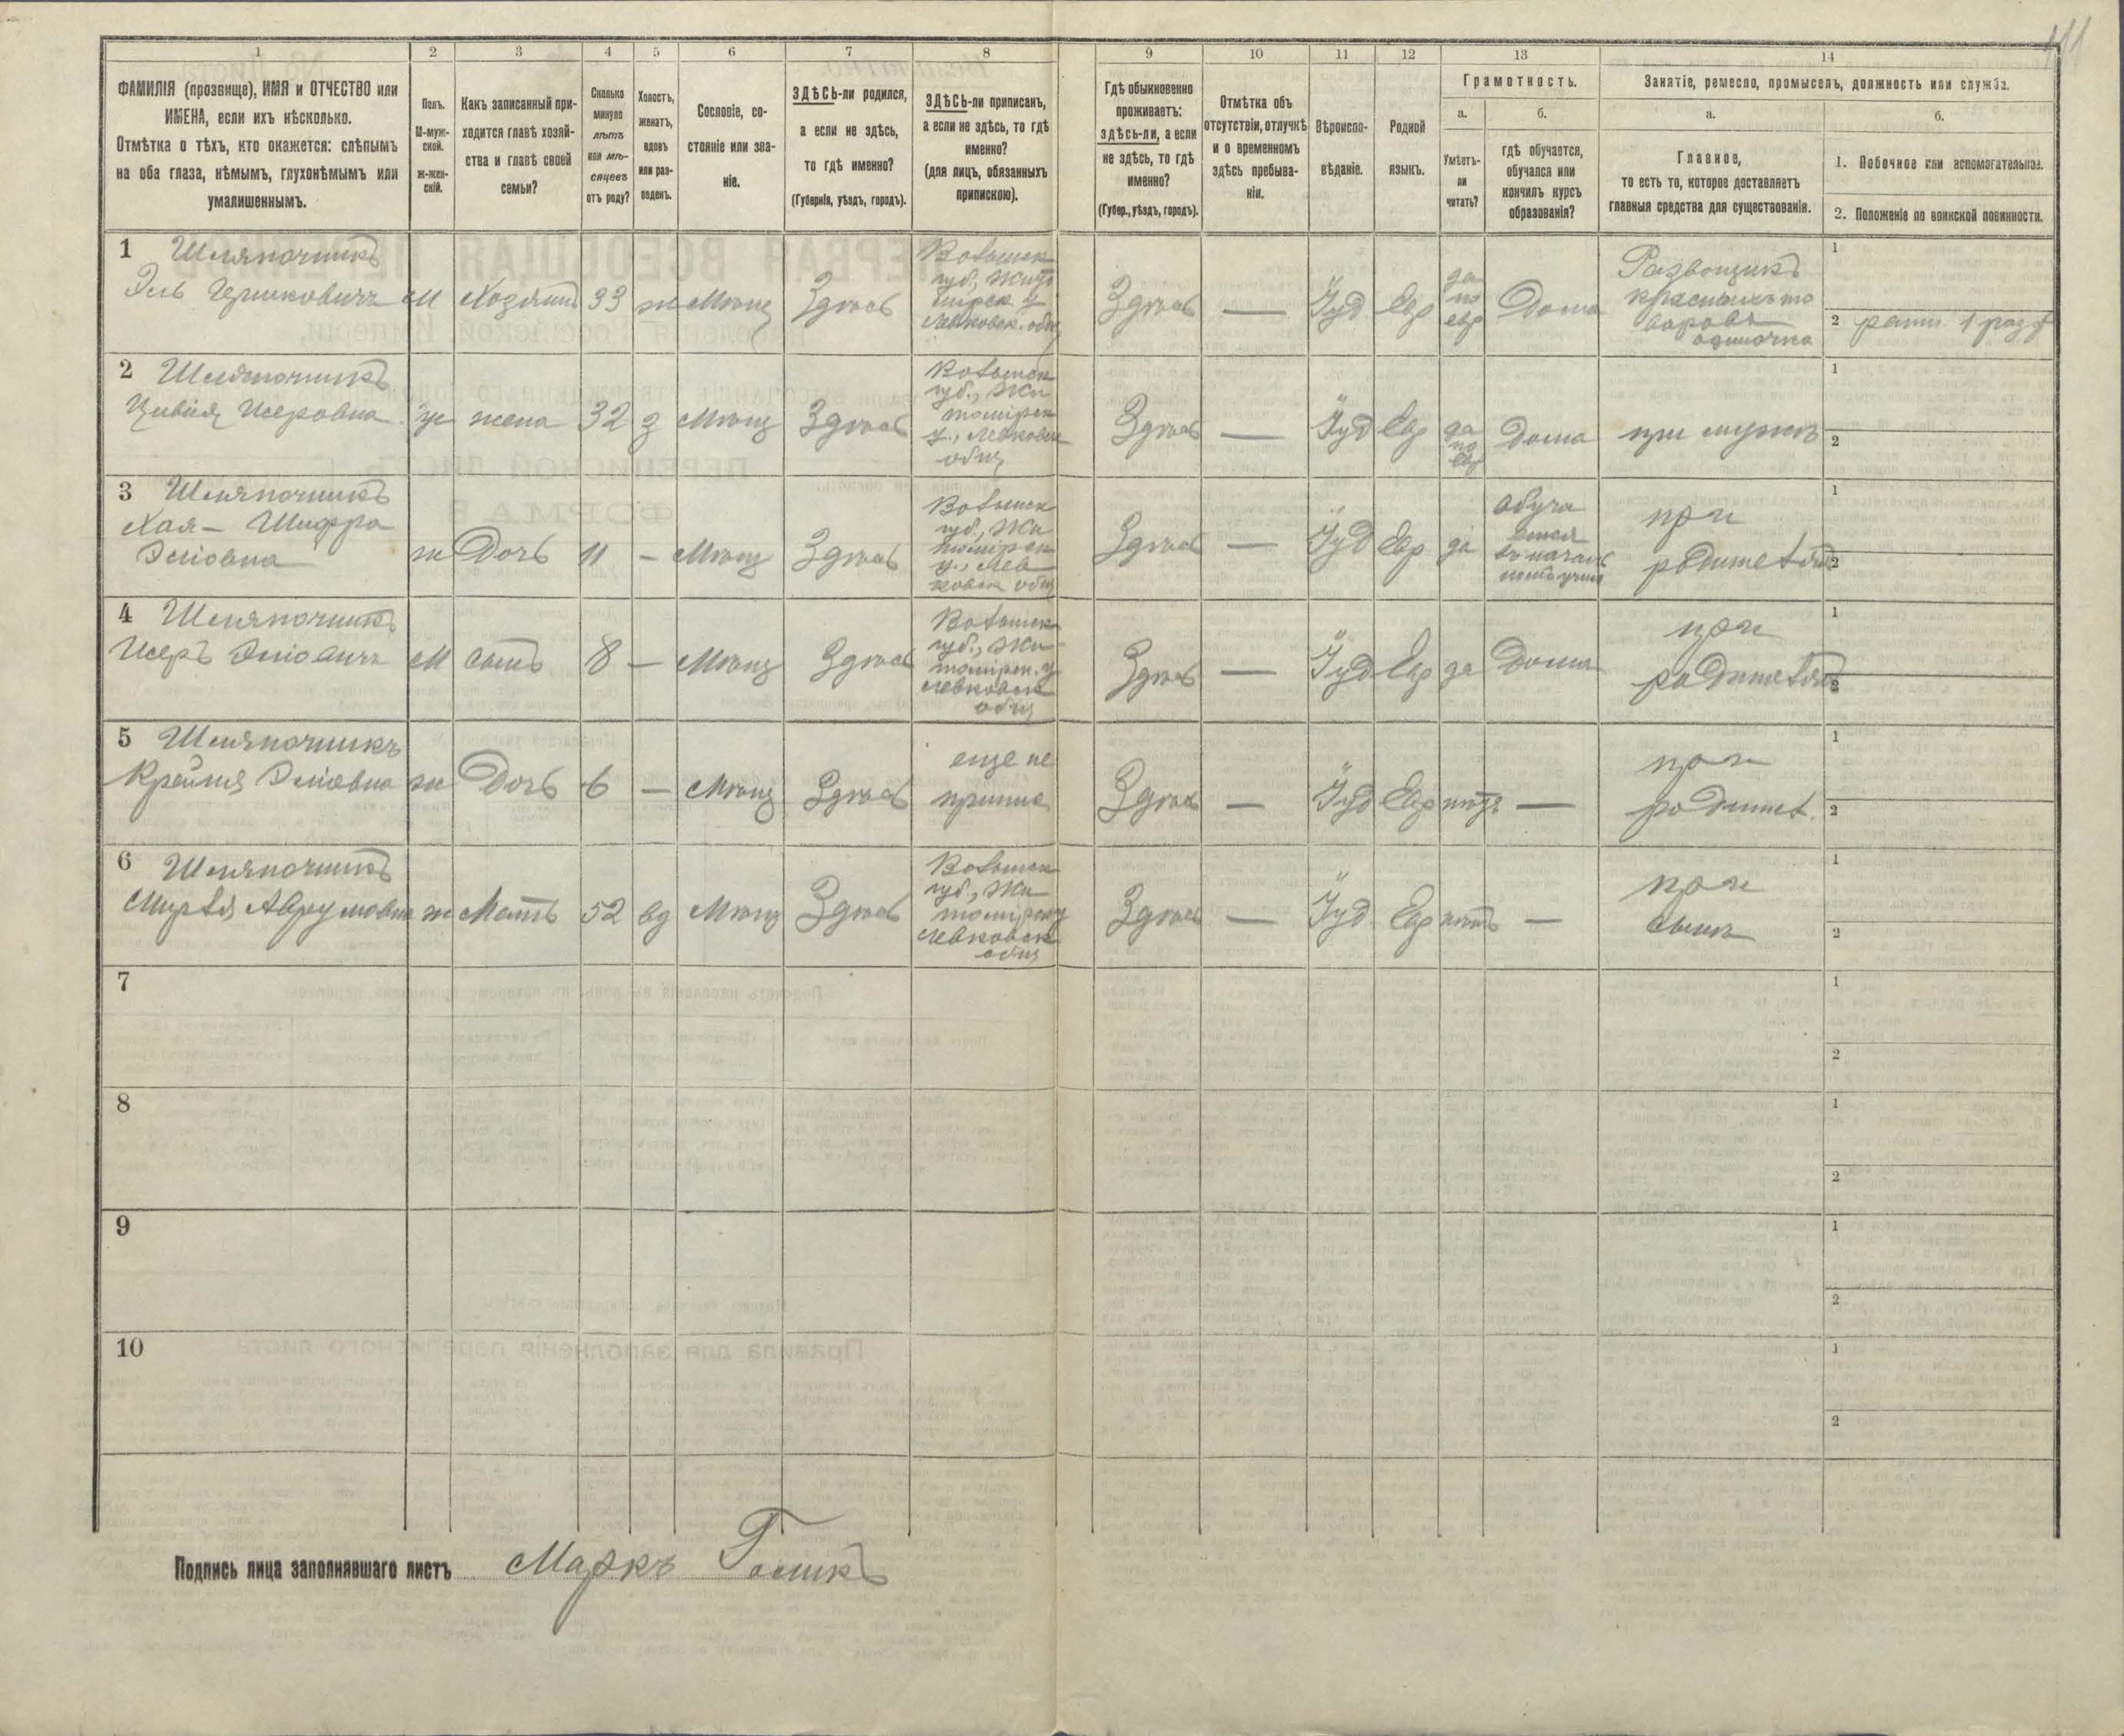 111
1
2
3
4
5
6
7
8
9
10
11
12
13
14
ФАМИЛІЯ (прозвище), ИМЯ и ОТЧЕСТВО или
ИМЕНА, если ихъ нѣсколько.
Отмѣтка о тѣхъ, кто окажется: слѣпымъ
на оба глаза, нѣмымъ, глухонѣмымъ или
умалишеннымъ.
Полъ.
М-муж-
ской.
ж-жен-
скій.
Какъ записанный при-
ходится главѣ хозяй-
ства и главѣ своей
семьи?
Сколько
минуло
лѣтъ
или мѣ-
сяцевъ
отъ роду?
Холостъ,
женатъ,
вдовъ
или раз-
веденъ.
Сословіе, со-
стояніе или зва-
ніе.
ЗДѢСЬ-ли родился,
а если не здѣсь,
то гдѣ именно?
(Губернія, уѣздъ, городъ).
ЗДѢСЬ-ли приписанъ,
а если не здѣсь, то гдѣ
именно?
(для лицъ, обязанныхъ
припискою).
Гдѣ обыкновенно
проживаетъ:
здѣсь-ли, а если
не здѣсь, то гдѣ
именно?
(Губер., уѣздъ, городъ).
Отмѣтка объ
отсутствіи, отлучкѣ
и о временномъ
здѣсь пребыва-
ніи.
Вѣроиспо-
вѣданіе.
Родной
языкъ.
Грамотность.
а.
Умѣетъ-
ли
читать?
б.
гдѣ обучается,
обучался или
кончилъ курсъ
образованія?
Занятіе, ремесло, промыселъ, должность или служба.
а.
Главное,
то есть то, которое доставляетъ
главныя средства для существованія.
б.
1. Побочное или вспомогательное.
2. Положеніе по воинской повинности.
1 Шляпочникъ
Эль Гершковичъ
М
Хозяинъ
33
ж
Мѣщ
Здѣсь
Волынск
губ., Жито
мирск у
Левковск. общ
Здѣсь
—
Іуд
Евр
да
по
евр
Дома
Развощикъ
красныхъ то
варовъ
одиночка
1
2 ратн. 1 разр
2 Шляпочникъ
Цивія Исеровна
ж
жена
32
з
Мѣщ
Здѣсь
Волынск
губ., Жи
томірск
у., Левковск
общ
Здѣсь
—
Іуд
Евр
да
по
евр
Дома
при мужѣ
1
2
3 Шляпочникъ
Хая-Шифра
Эліовна
ж
Дочь
11
—
Мѣщ
Здѣсь
Волынск
губ., Жи
томірск
у., Лев
ковск общ
Здѣсь
—
Іуд
Евр
да
Обуча
ется
въ началь
номъ учил
при
родителяхъ
1
2
4 Шляпочникъ
Исеръ Эліовичъ
М
сынъ
8
—
Мѣщ
Здѣсь
Волынск
губ., Жи
томірск. у
Левковск
общ
Здѣсь
—
Іуд
Евр
да
Дома
при
родителяхъ
1
2
5 Шляпочникъ
Крейня Эліовна
ж
Дочь
6
—
Мѣщ
Здѣсь
еще не
припис
Здѣсь
—
Іуд
Евр
нѣтъ
—
при
родител.
1
2
6 Шляпочникъ
Мирля Аврумовна
ж
Мать
52
вд
Мѣщ
Здѣсь
Волынск
губ., Жи
томірск у
Левковск
общ
Здѣсь
—
Іуд
Евр
нѣтъ
—
при
сынѣ
1
2
7
1
2
8
1
2
9
1
2
10
1
2
Подпись лица заполнявшаго листъ Маркъ